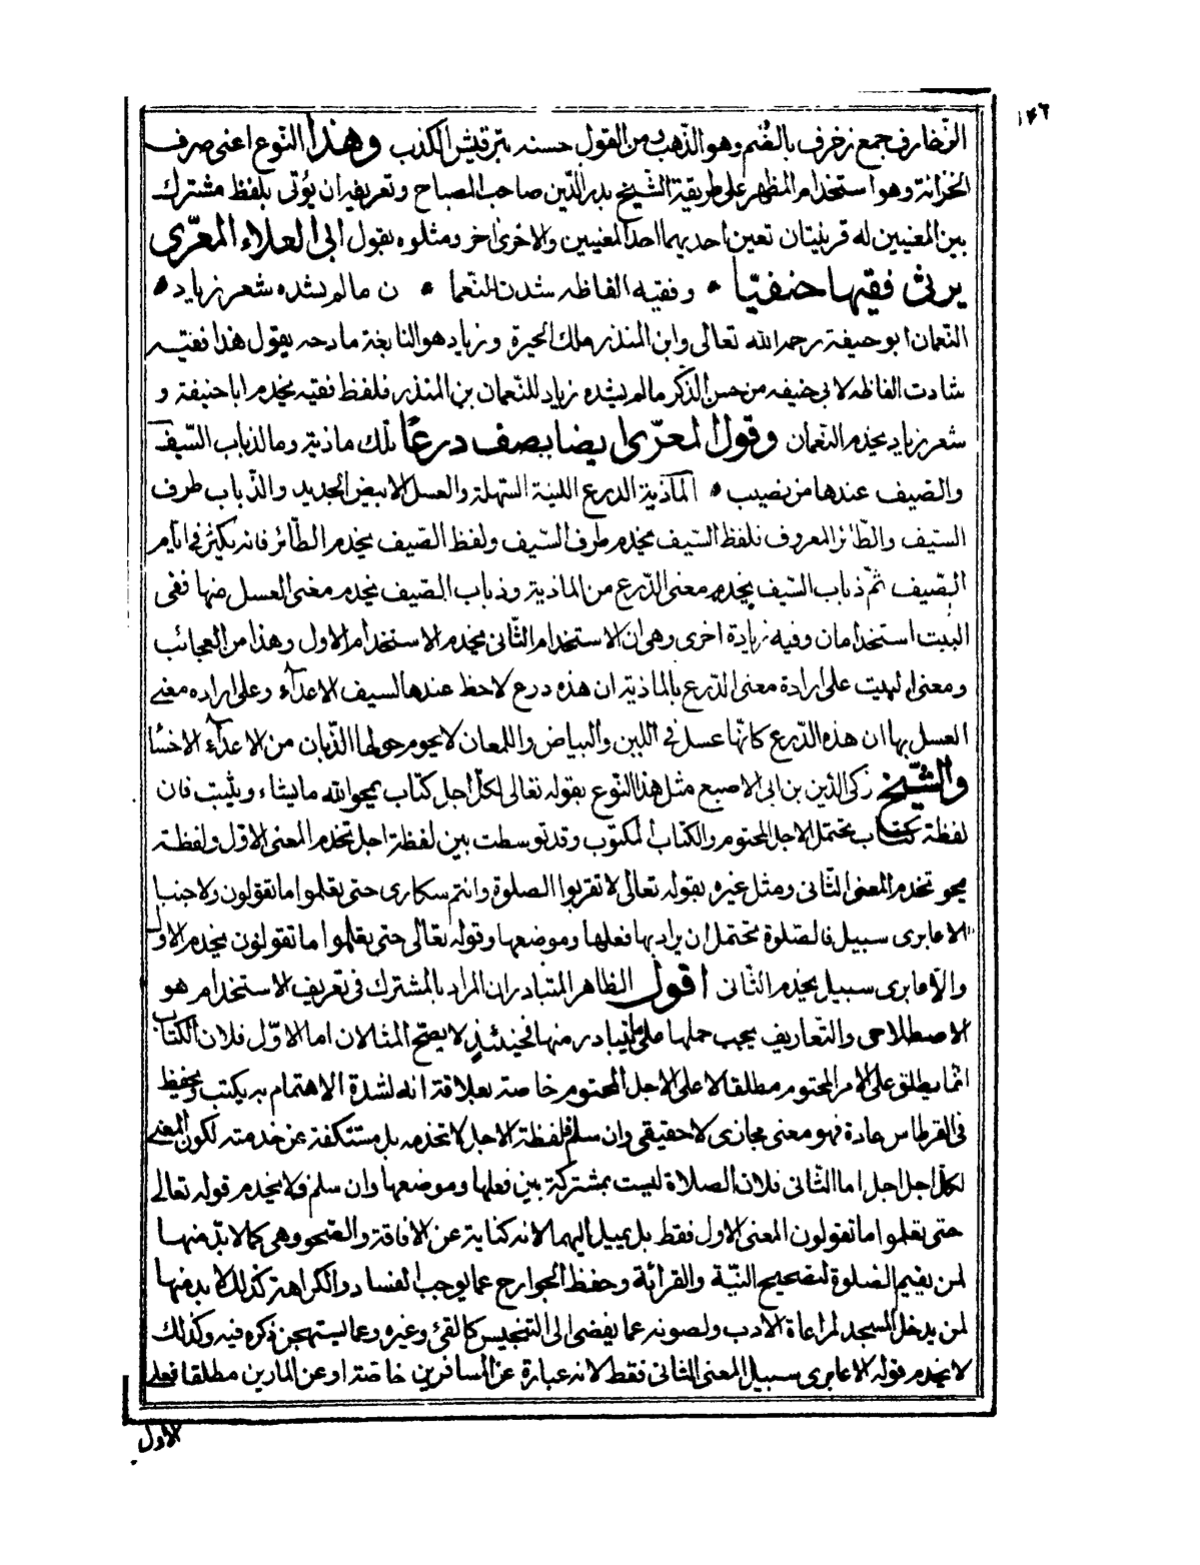 ١٤٦
الزّخارف جمع زخرف بالضّم وهو الذّهب ومن القول حسنه بترقيش الكذب وهذا النّوع اعنى صرف
الخزانة وهو استخدام المظهر على طريقة الشّيخ بدر الدّين صاحب المصباح وتعريفه ان يؤتى بلفظ مشترك
بين المعنيين له قرينتان تعين احديهما احد المعنيين والاخرى اخر ومثلوه بقول ابى العلاء المعرّى
يرثى فقيها حنفيّا • وفقيه الفاظه شدن للنّعما • ن مالم يشده شعر زياد •
النّعمان ابو حنيفة رحمه الله تعالى وابن المنذر ملك الحيرة وزياد هو النابغة مادحه يقول هذا فقيه
شادت الفاظه لابى حنيفه من حسن الذّكر مالم يشده زياد للنّعمان بن المنذر فلفظ فقيه يخدم ابا حنيفة و
شعر زياد يخدم النّعمان وقول المعرّى ايضا بصف درعًا تلك ماذية وما لذباب السّيف
والصّيف عندها من نصيب • الماذية الدرع اللينة السّهلة والعسل الابيض الجديد والذّباب طرف
السّيف والطّائر المعروف فلفظ السّيف يخدم طرف السّيف ولفظ الصّيف يخدم الطّائر فانه يكثر فى ايّام
الصّيف ثمّ ذباب السّيف يخدم معنى الدّرع من الماذية وذباب الصّيف يخدم معنى العسل منها ففى
البيت استخدامان وفيه زيادة اخرى وهى ان الاستخدام الثّانى يخدم الاستخدام الاول وهذا من العجائب
ومعنى البيت على ارادة معنى الدّرع بالماذية ان هذه درع لا حظ عندها لسيف الاعدآء وعلى اراده معنى
العسل بها ان هذه الدّرع كانّها عسل فى اللين والبياض واللمعان لا يحوم حولها الذّبان من الاعدآء الاخسّا
والشّيخ زكى الدّين بن ابى الاصبع مثل هذا النّوع بقوله تعالى لكلّ اجل كتاب يمحو الله ما يشاء ويثبت فان
لفظة كتاب يحتمل الاجل المحتوم والكتاب المكتوب وقد توسطت بين لفظة اجل تخدم المعنى الاوّل ولفظة
يمحو تخدم المعنى الثّانى ومثل غيره بقوله تعالى لا تقربوا الصلوة وانتم سكارى حتى يعلموا ما تقولون ولا جنبا
الا عابرى سبيل فالصّلوة يحتمل ان يراد بها فعلها وموضعها وقوله تعالى حتى يعلموا ما تقولون يخدم الاول
والّا عابرى سبيل يخدم الثّانى اقول الظاهر المتبادر ان المراد بالمشترك فى تعريف الاستخدام هو
الاصطلاحى والتّعاريف يجب حملها على ما يتبادر منها فحينئذٍ لا يصحّ المثالان اما الاوّل فلان الكتاب
انّما يطلق على الامر المحتوم مطلقا لا على الاجل المحتوم خاصة بعلاقة انه لشدة الاهتمام به يكتب ويحفظ
فى القرطاس عادة فهو معنى مجازى لا حقيقى وان سلم فلفظة الاجل لا تخدمه بل مستنكفة عن خدمته لكون المعنى
لكلّ اجل اجل اما الثّانى فلان الصلاة ليست بمشتركة بين فعلها وموضعها وان سلم فلا يخدم قوله تعالى
حتى يعلموا ما تقولون المعنى الاول فقط بل يميل اليهما لانه كناية عن الافاقة والصّحو وهى كما لا بدّ منها
لمن يقيم الصّلوة لتصحيح النّيّة والقرائة وحفظ الجوارح عما يوجب الفساد والكراهة كذلك لا بد منها
لمن يدخل المسجد لمراعاة الادب ولصونه عما يفضى الى التّنجيس كالقئ وغيره وعما يستهجن ذكره فيه وكذلك
لا يخدم قوله الا عابرى سبيل المعنى الثانى فقط لانه عبارة عن المسافرين خاصّة او عن المارين مطلقا فعلى
الاول